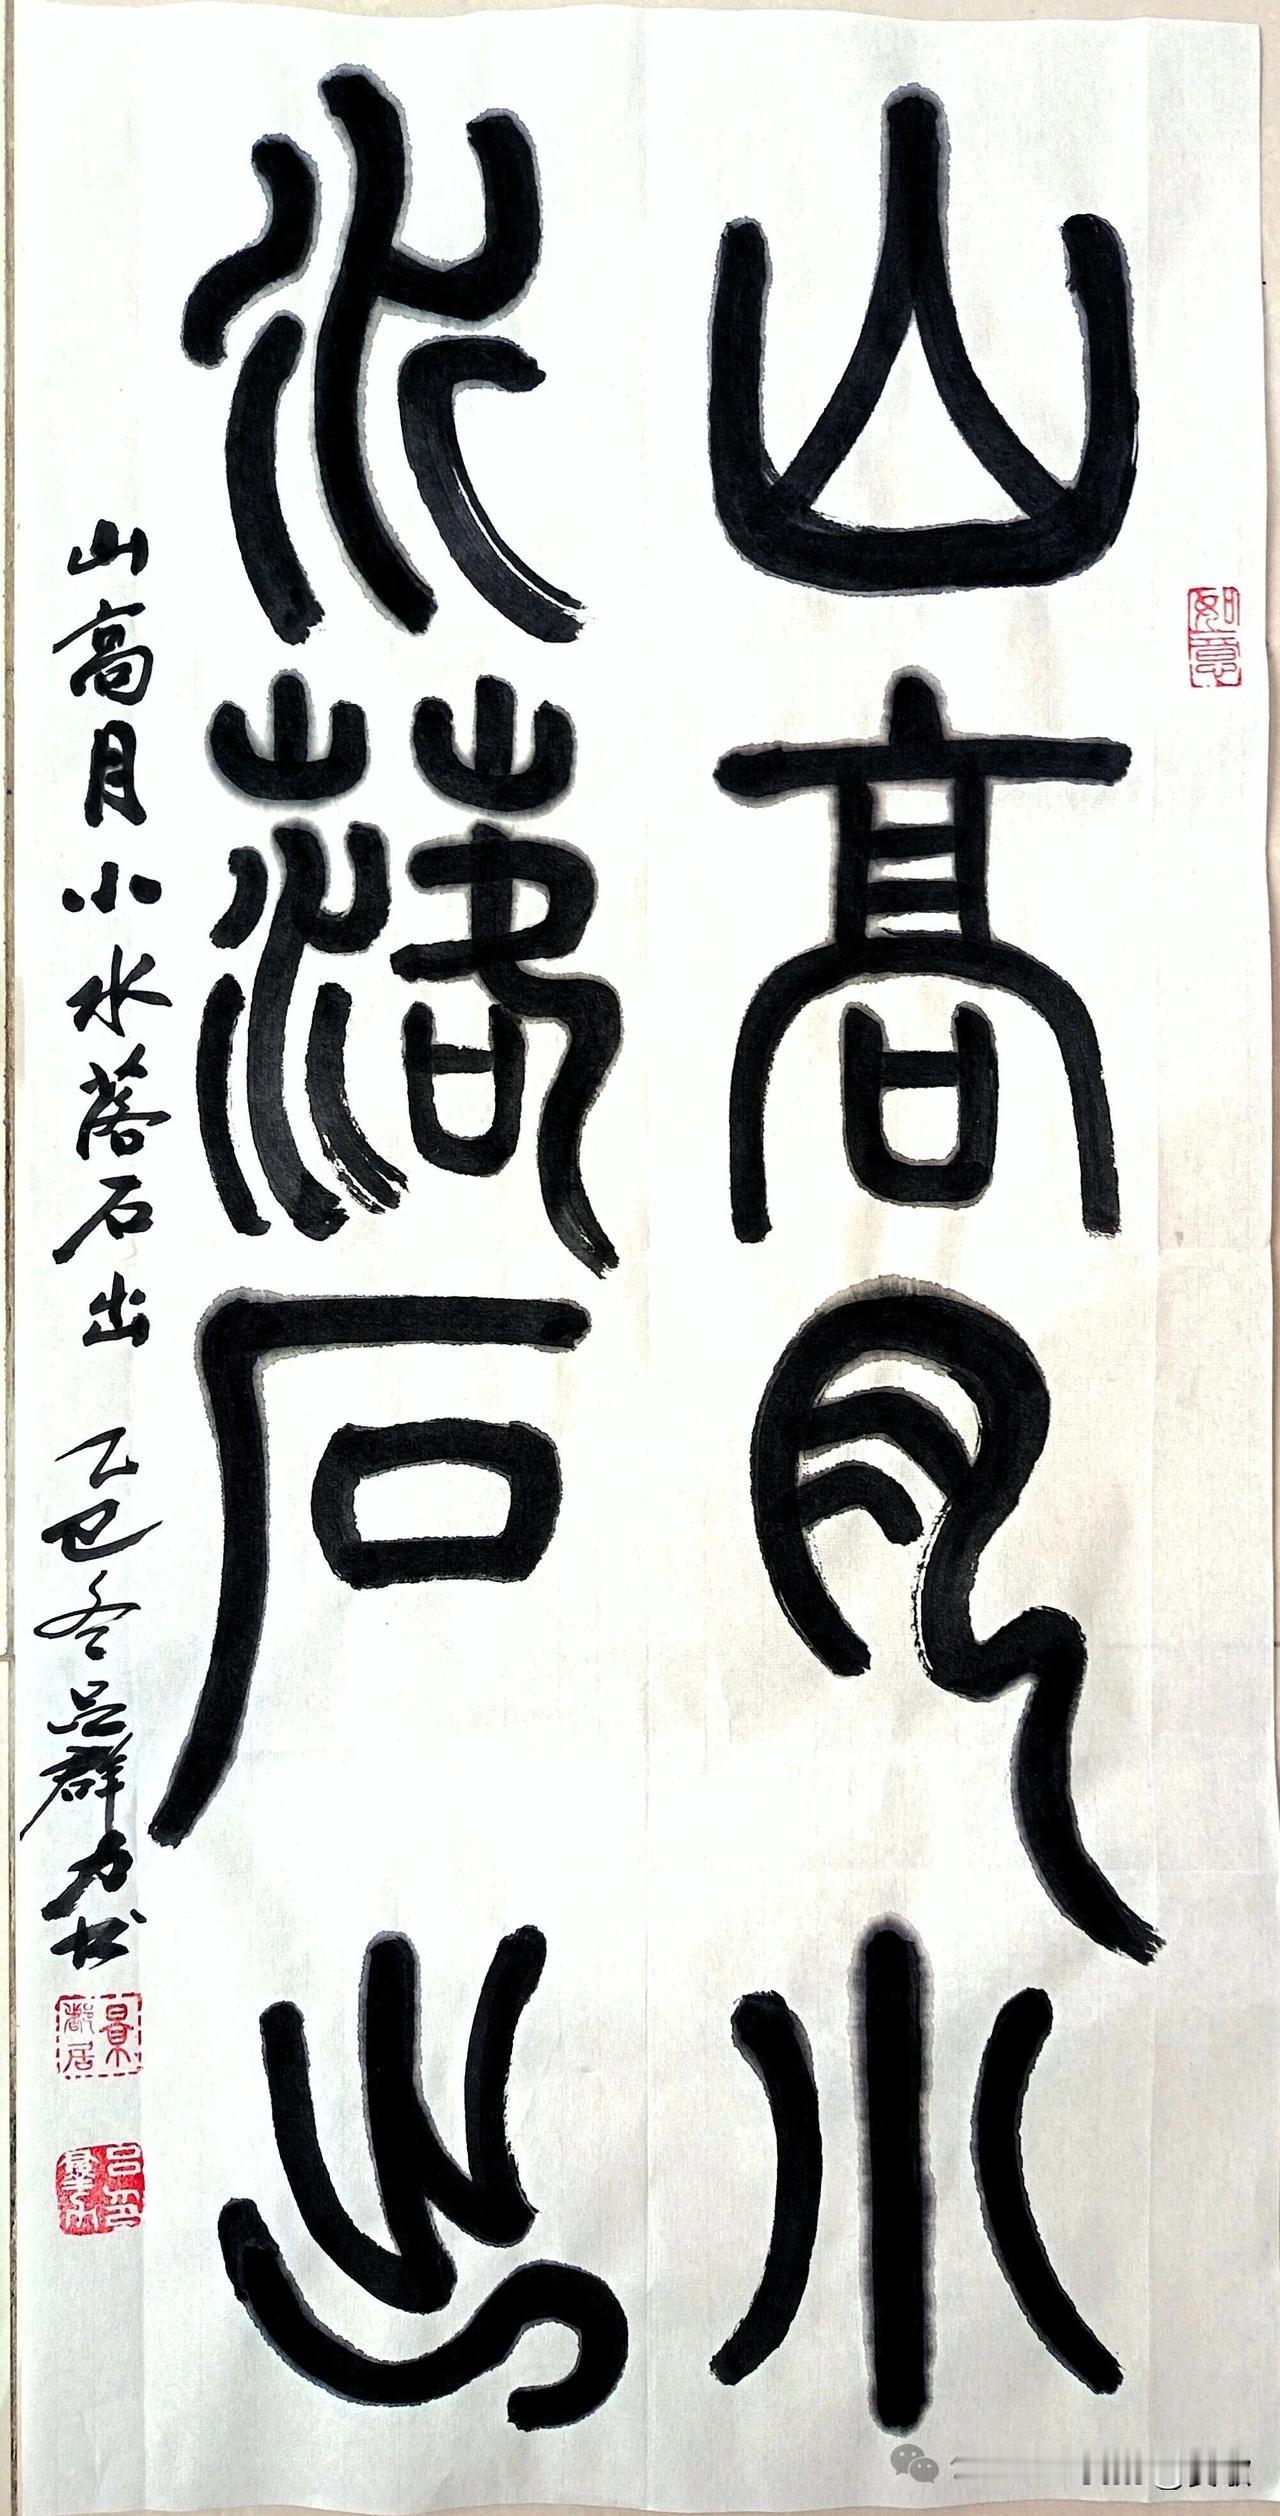 山高月小
水落石出
山高月小水落石出 乙巳冬吕群力书
如意